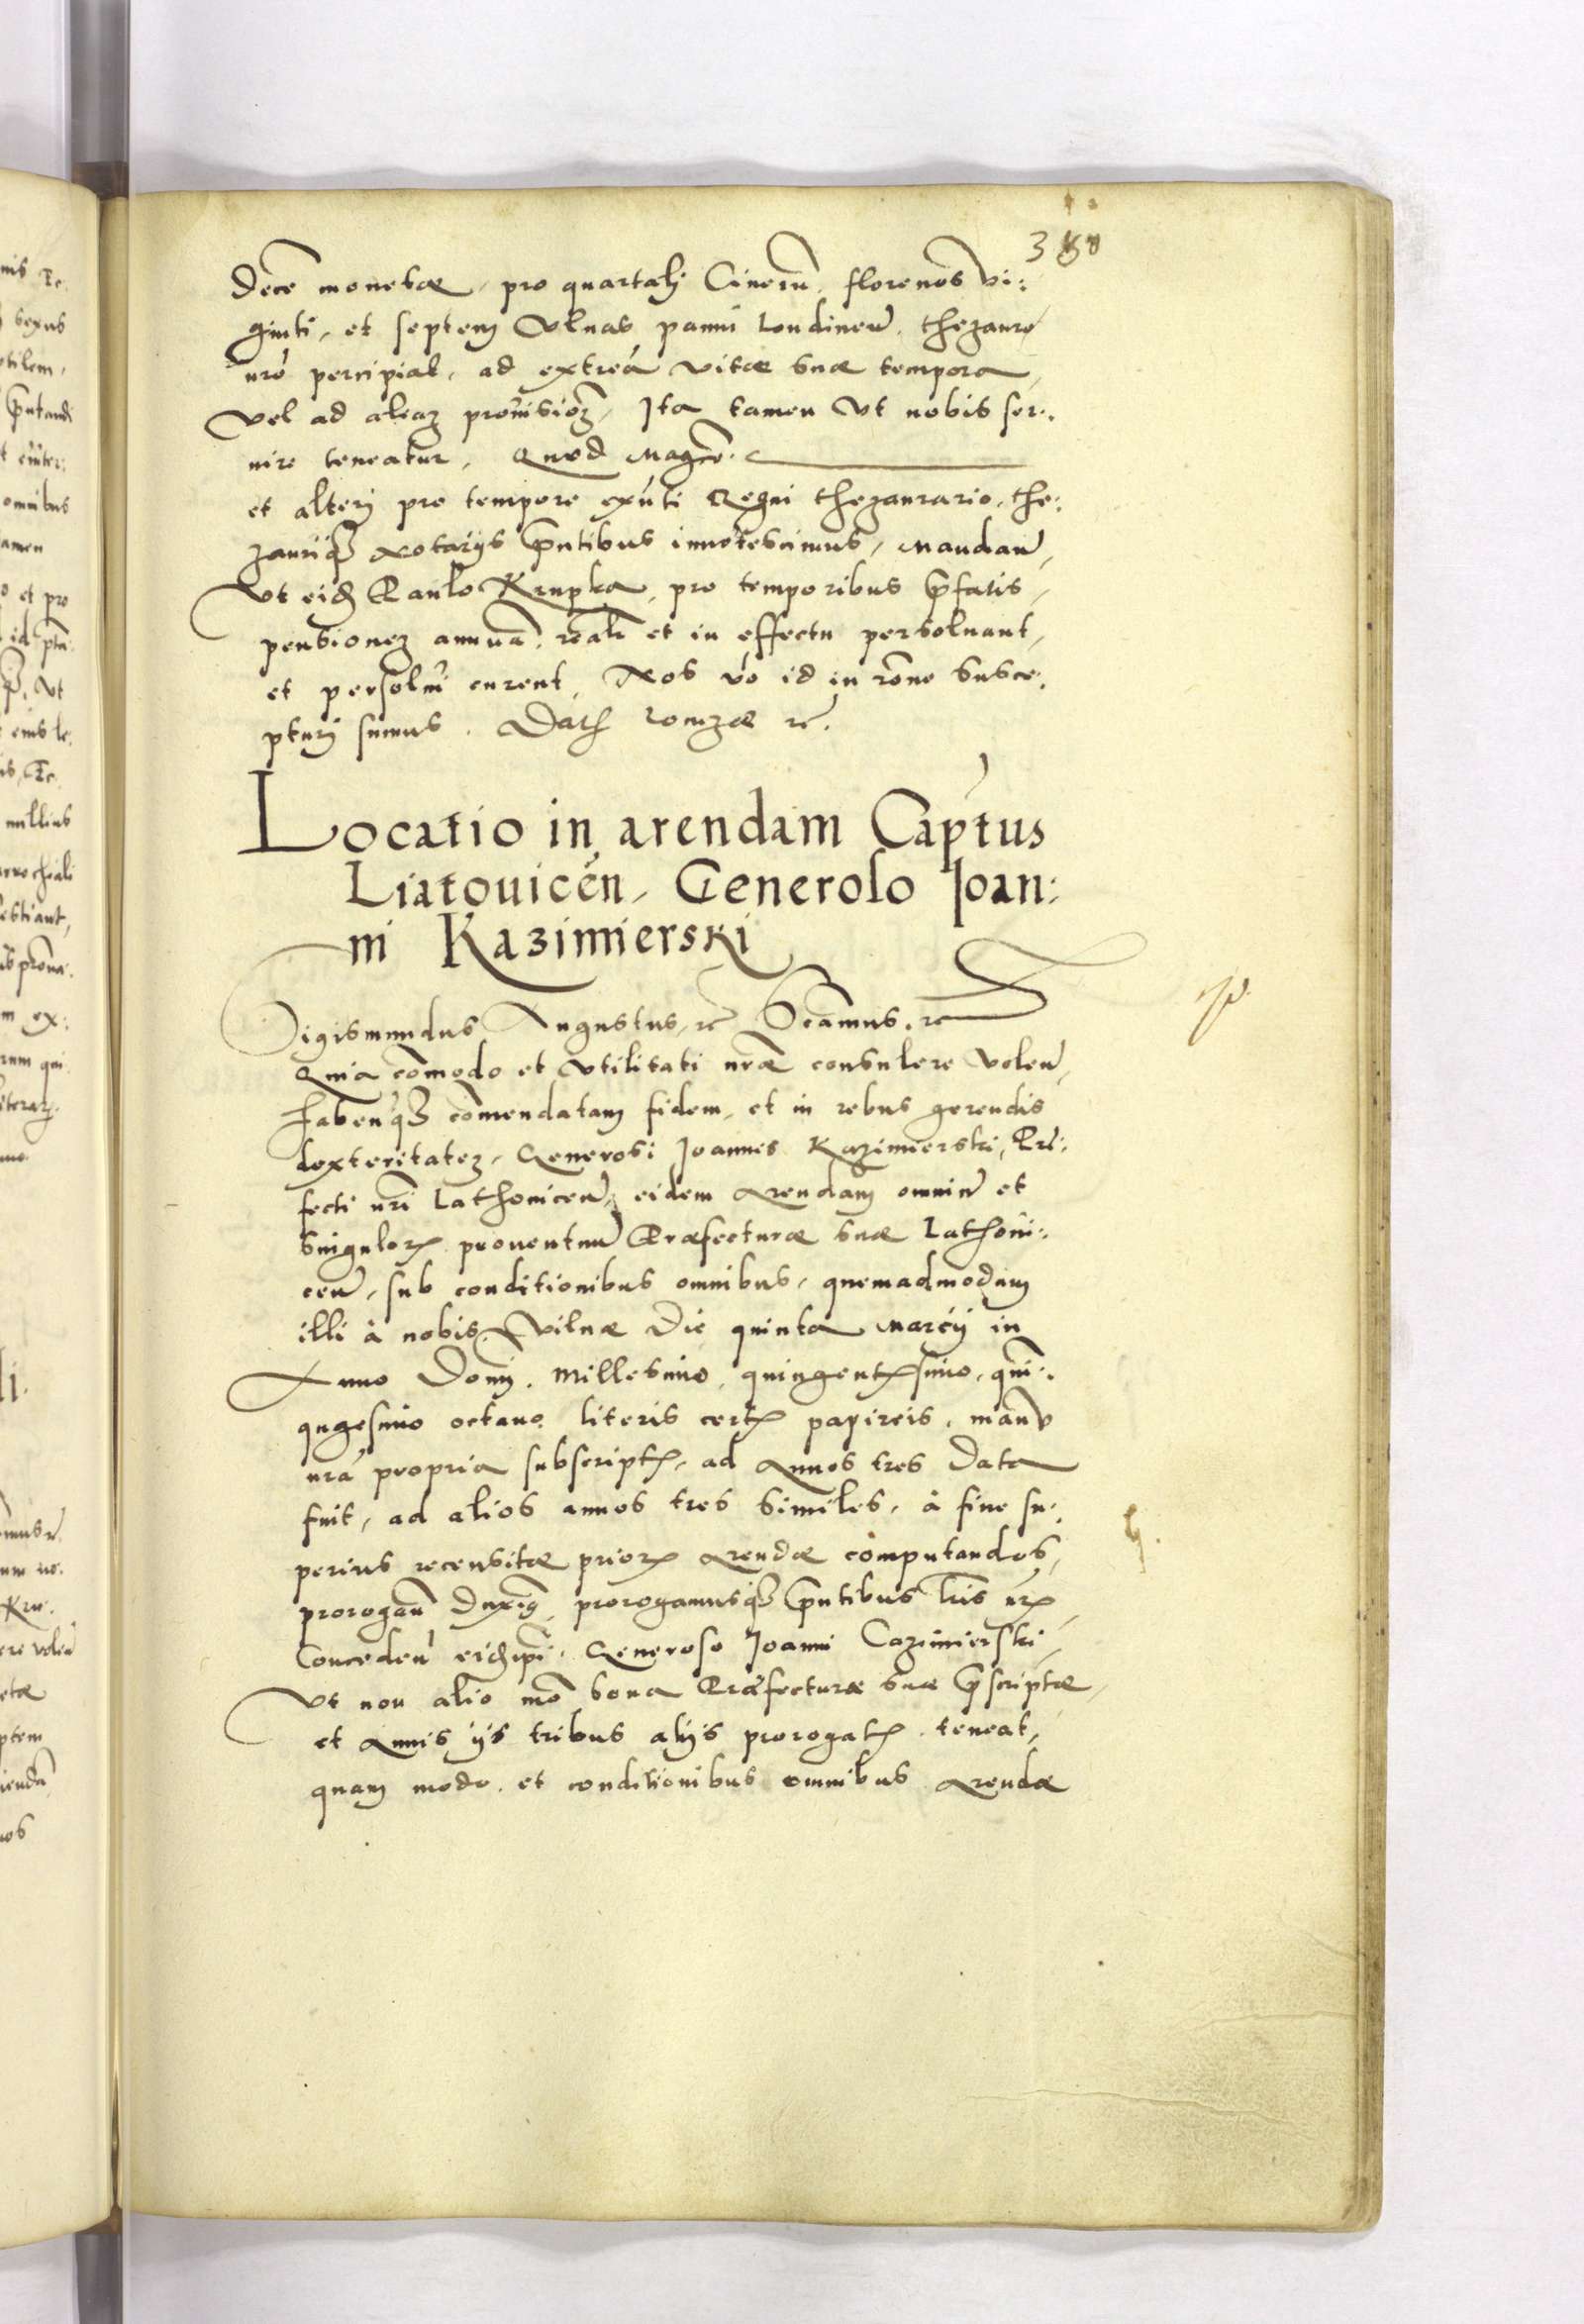 decē monetæ, pro quartali Cinerū, florenos vi:
ginti, et septem vlnas panni Londinen̄, thezauro
nrō percipiat, ad extrēa vitæ suæ tempora,
vel ad aleaz prouisioēz, Ita tamen vt nobis ser:
uire teneatur, Quod Magcō.
et alteri pro tempore exn̄ti Regni thezaurario, the:
zauriq3 Notarijs pn̄tibus innotescimus, Mandan̄,
Vt eid Paulo Krupka, pro temporibus pfatis,
pensionez annuā, realr̄ et in effectu persoluant,
et persolui curent, Nos vō id in rōne susce:
pturi sumus. Dat Lomzæ rē.
Locatio in arendam Capt̄us
Liatouicēn, Generoso Ioan:
ni Kazimierski
Sigismundus Augustus, rē Scām̄us, rē
Quia cōmodo et vtilitati nræ consulere volen̄,
habenq3 cōmendatam fidem, et in rebus gerendis
dexteritatez, Generosi Joannis Kazimierski, Prē:
fecti nrī Lathouicen̄, eidem Arendam omniū et
singulor proventuū Præfecturæ suæ Lathoui:
cen̄, sub conditionibus omnibus, quemadmodum
illi à nobis Vilnæ Die quinta Marcij in
Anno Domī. Millesimo, quingentesimo, qui:
qugesimo octauo literis certis papireis, manu
nrā propria subscriptis, ad Annos tres Data
fuit, ad alios annos tres similes, à fine su:
perius recensitæ prioris Arendæ computandos,
prorogan̄ duxim9, prorogamusq3 pn̄tibus lrīs nrīs
Conceden̄ eid ipi Generoso Joanni Cazimierski,
Vt non alio mō bona Præfecturæ suæ pscriptæ,
et Annis ijs tribus alijs prorogatis teneat,
quam modo et conditionibus omnibus Arendæ